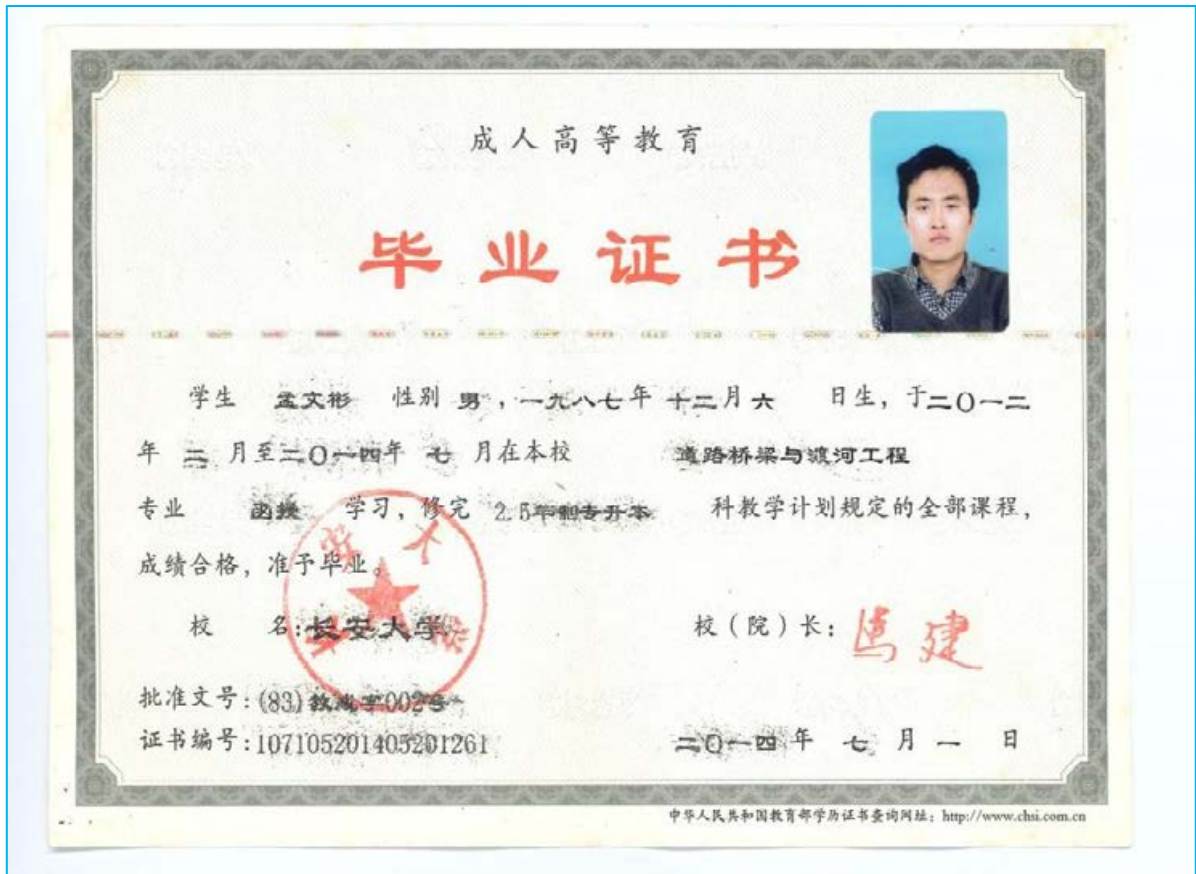 成人高等教育
毕业证书
学生 孟文彬 性别 男，一九八七年 十二月 六 日生，于二〇一二
年 二 月至二〇一四年 七 月在本校 道路桥梁与渡河工程
专业 函授 学习，修完 2.5年制专升本 科教学计划规定的全部课程，
成绩合格，准予毕业。
校 名：长安大学
校（院）长：马建
批准文号：(83)教成字002号
证书编号：107105201405201261
二〇一四年 七 月 一 日
中华人民共和国教育部学历证书查询网址：http://www.chsi.com.cn